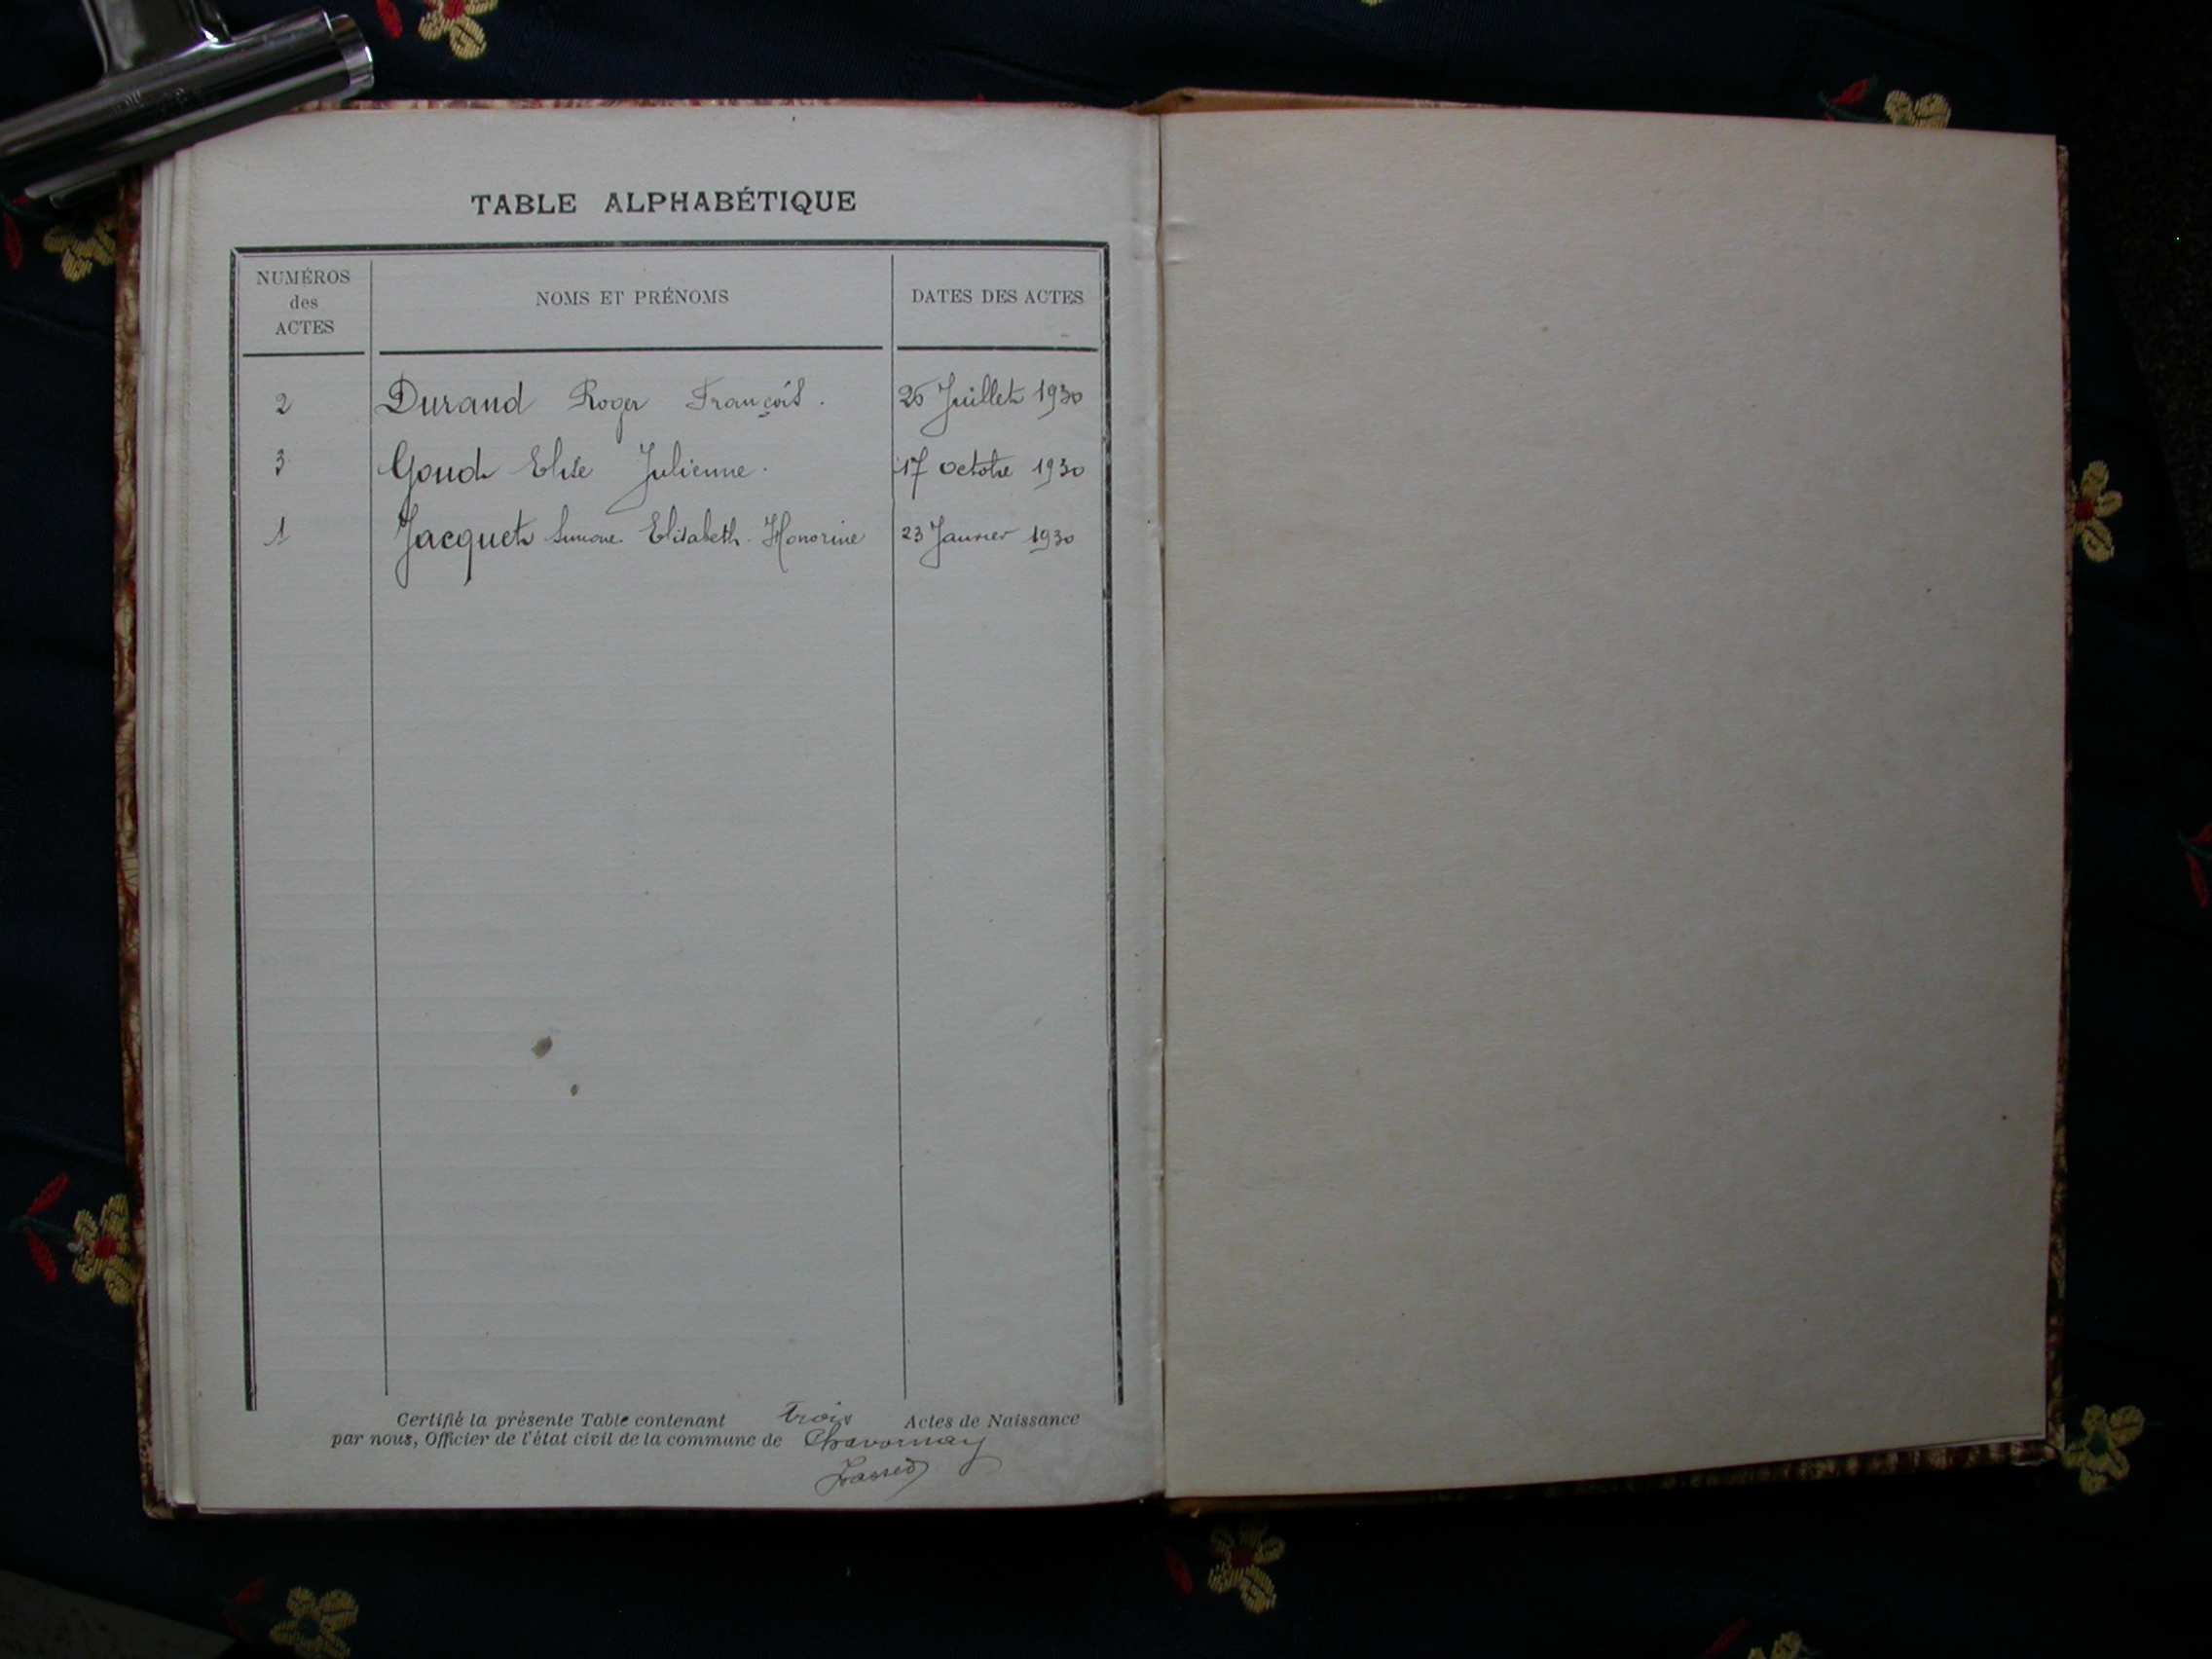 TABLE ALPHABÉTIQUE
NUMÉROS des ACTES NOMS ET PRÉNOMS DATES DES ACTES
2 Durand Roger François. 26 Juillet 1930
3 Goud Elise Julienne. 17 octobre 1930
1 Jacquet Simone Elisabeth Honorine 23 Janvier 1930
Certifié la présente Table contenant trois Actes de Naissance
par nous, Officier de l'état civil de la commune de Chavornay